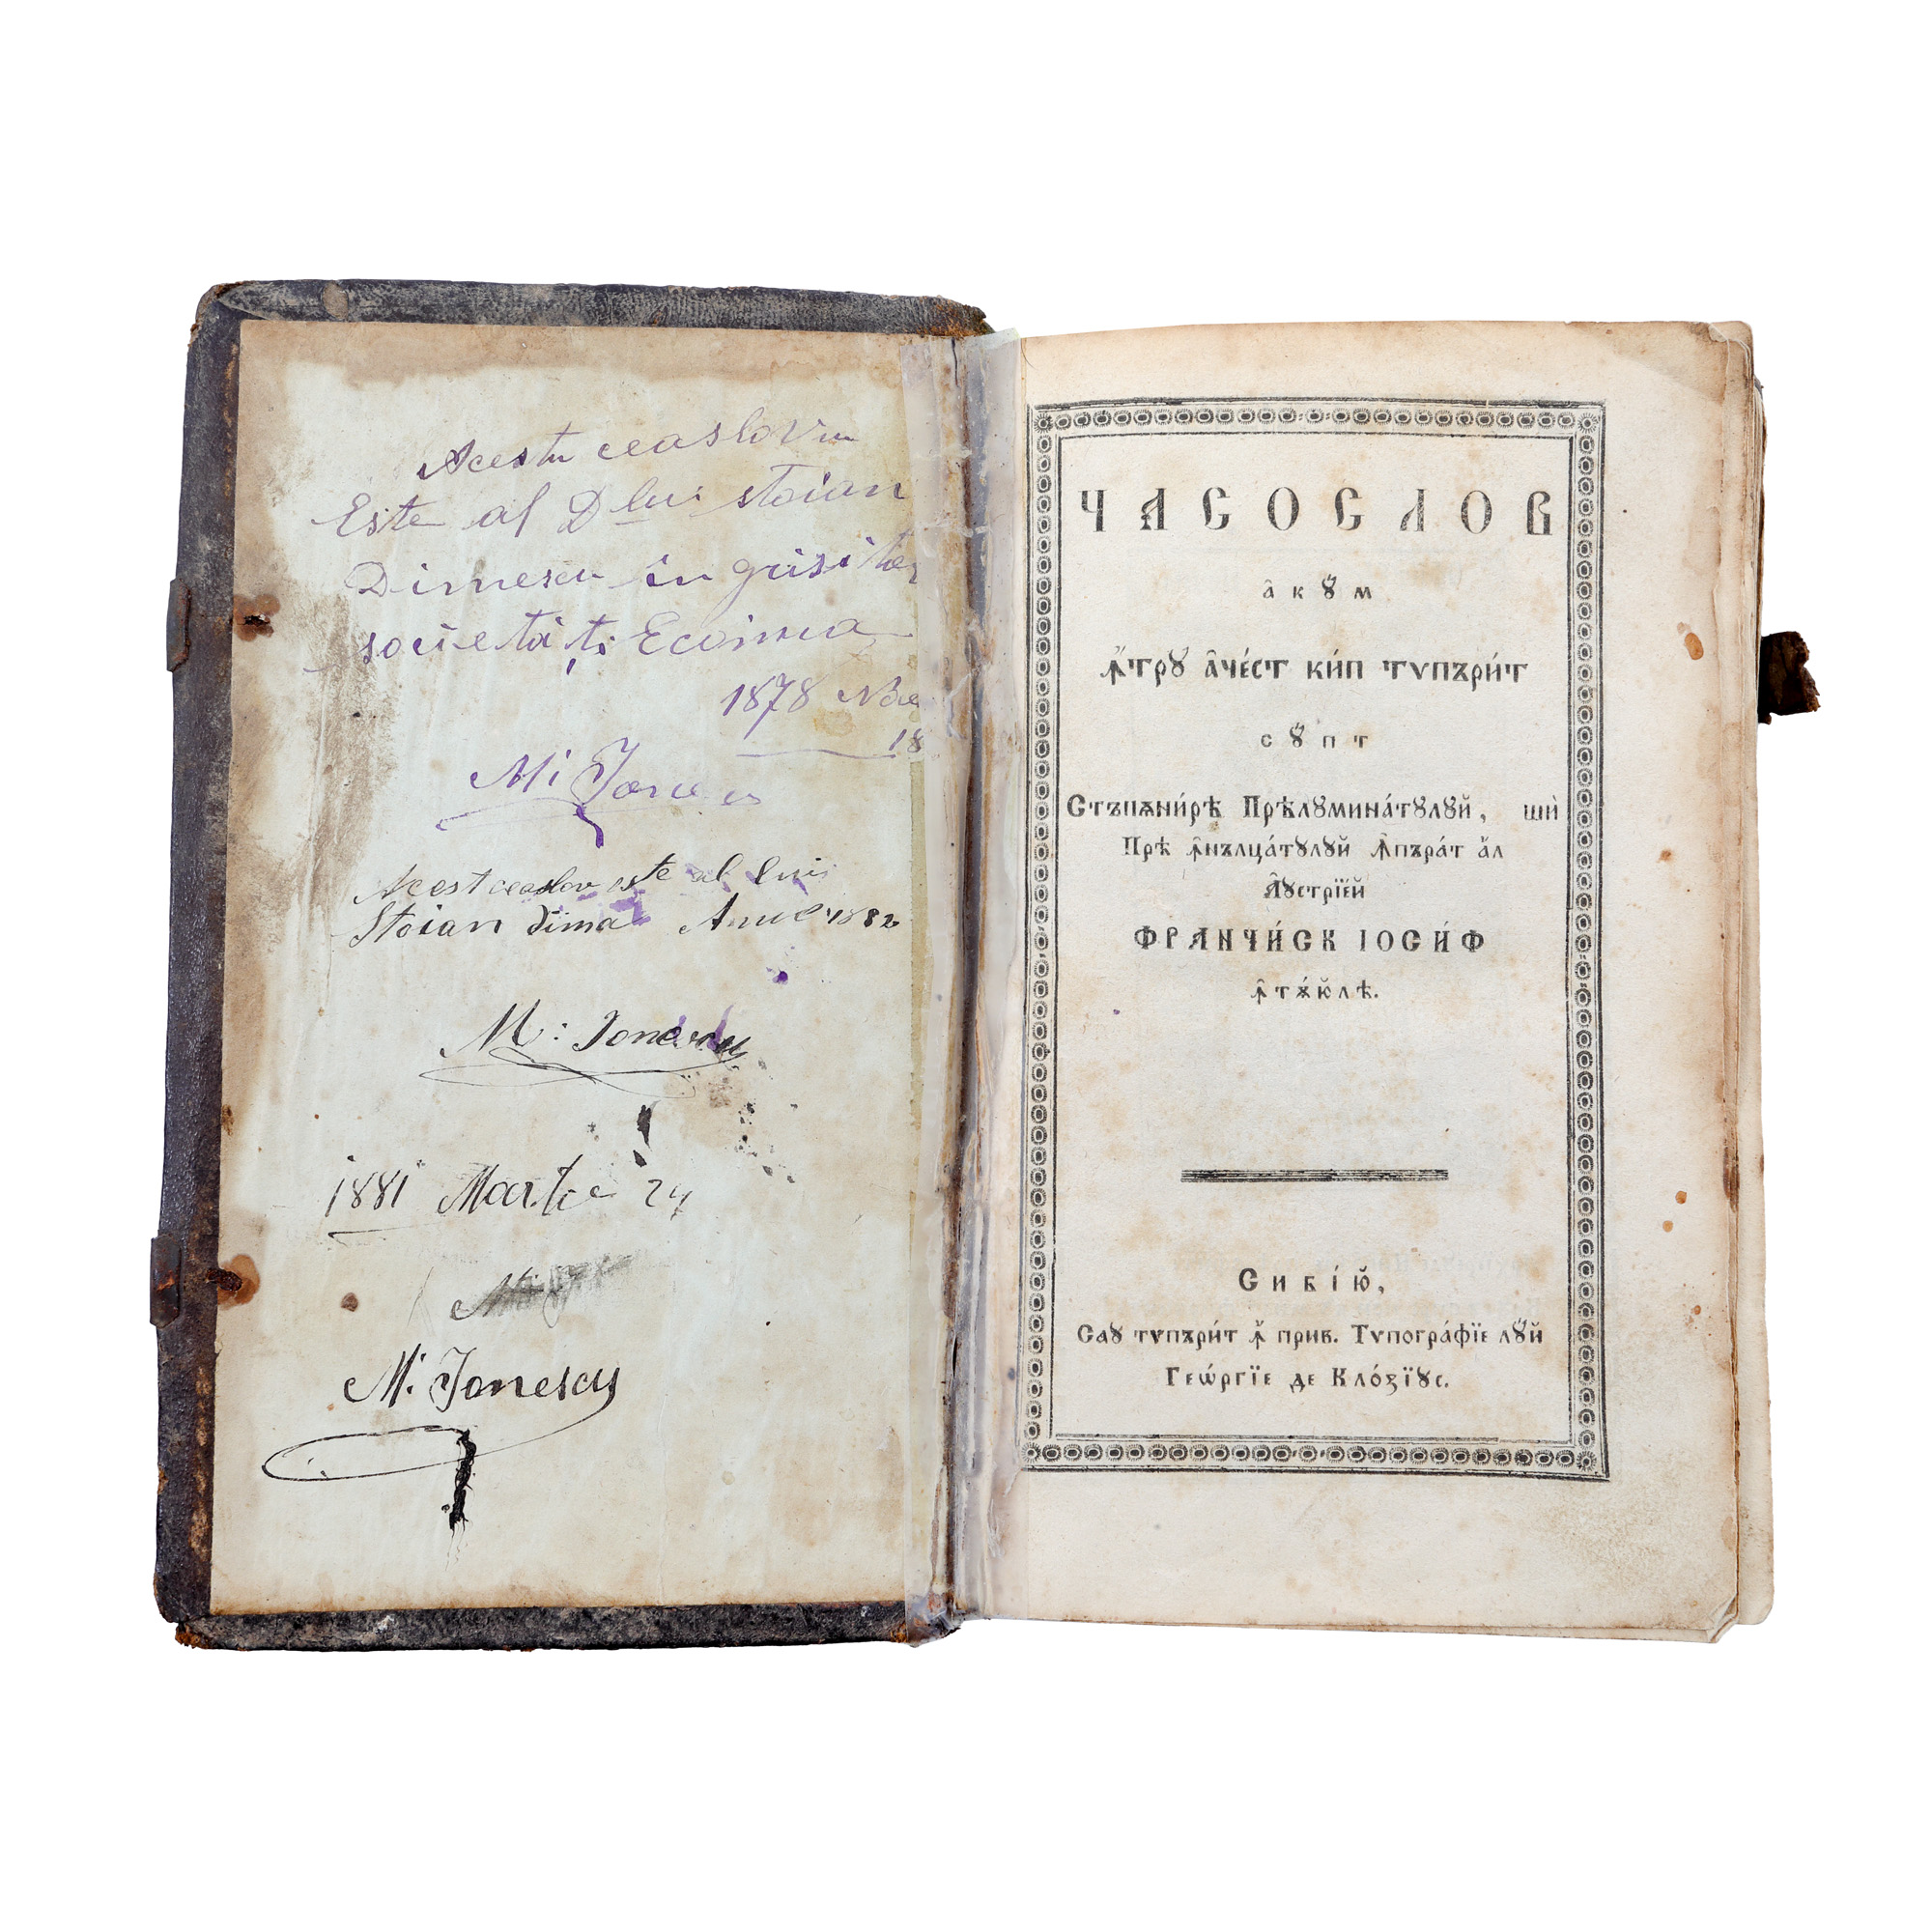 Acestu ceaslovu
Este al Dlui Stoian
Dimescu în
societăți
1878
18
Mi Jonescu
Acest ceaslov este al lui
Stoian Dima Anul 1882
M: Jonescu
1881 Martie 24
M. Jonescu
ЧАСОСЛОВ
а̂кꙋ́м
ꙟ҆́трꙋ а̂че́ст ки́п тѵпъри́т
сꙋ́пт
Стъпѫни́рѣ Прѣлꙋмина́тꙋлꙋй, шѝ
Прѣ ꙟ҆нълца́тꙋлꙋй ꙟ҆пъра́т а҆́л
А҆ꙋстрїе́й
ФРАНЧИ́СК ІОСИ́Ф
ꙟ҆тѫ́юлѣ.
Сибі́ю,
Саꙋ тѵпъри́т ꙟ҆̀ прив. Тѵпогра́фїе лꙋ́й
Геѡ́ргїе де Кло́зїꙋс.